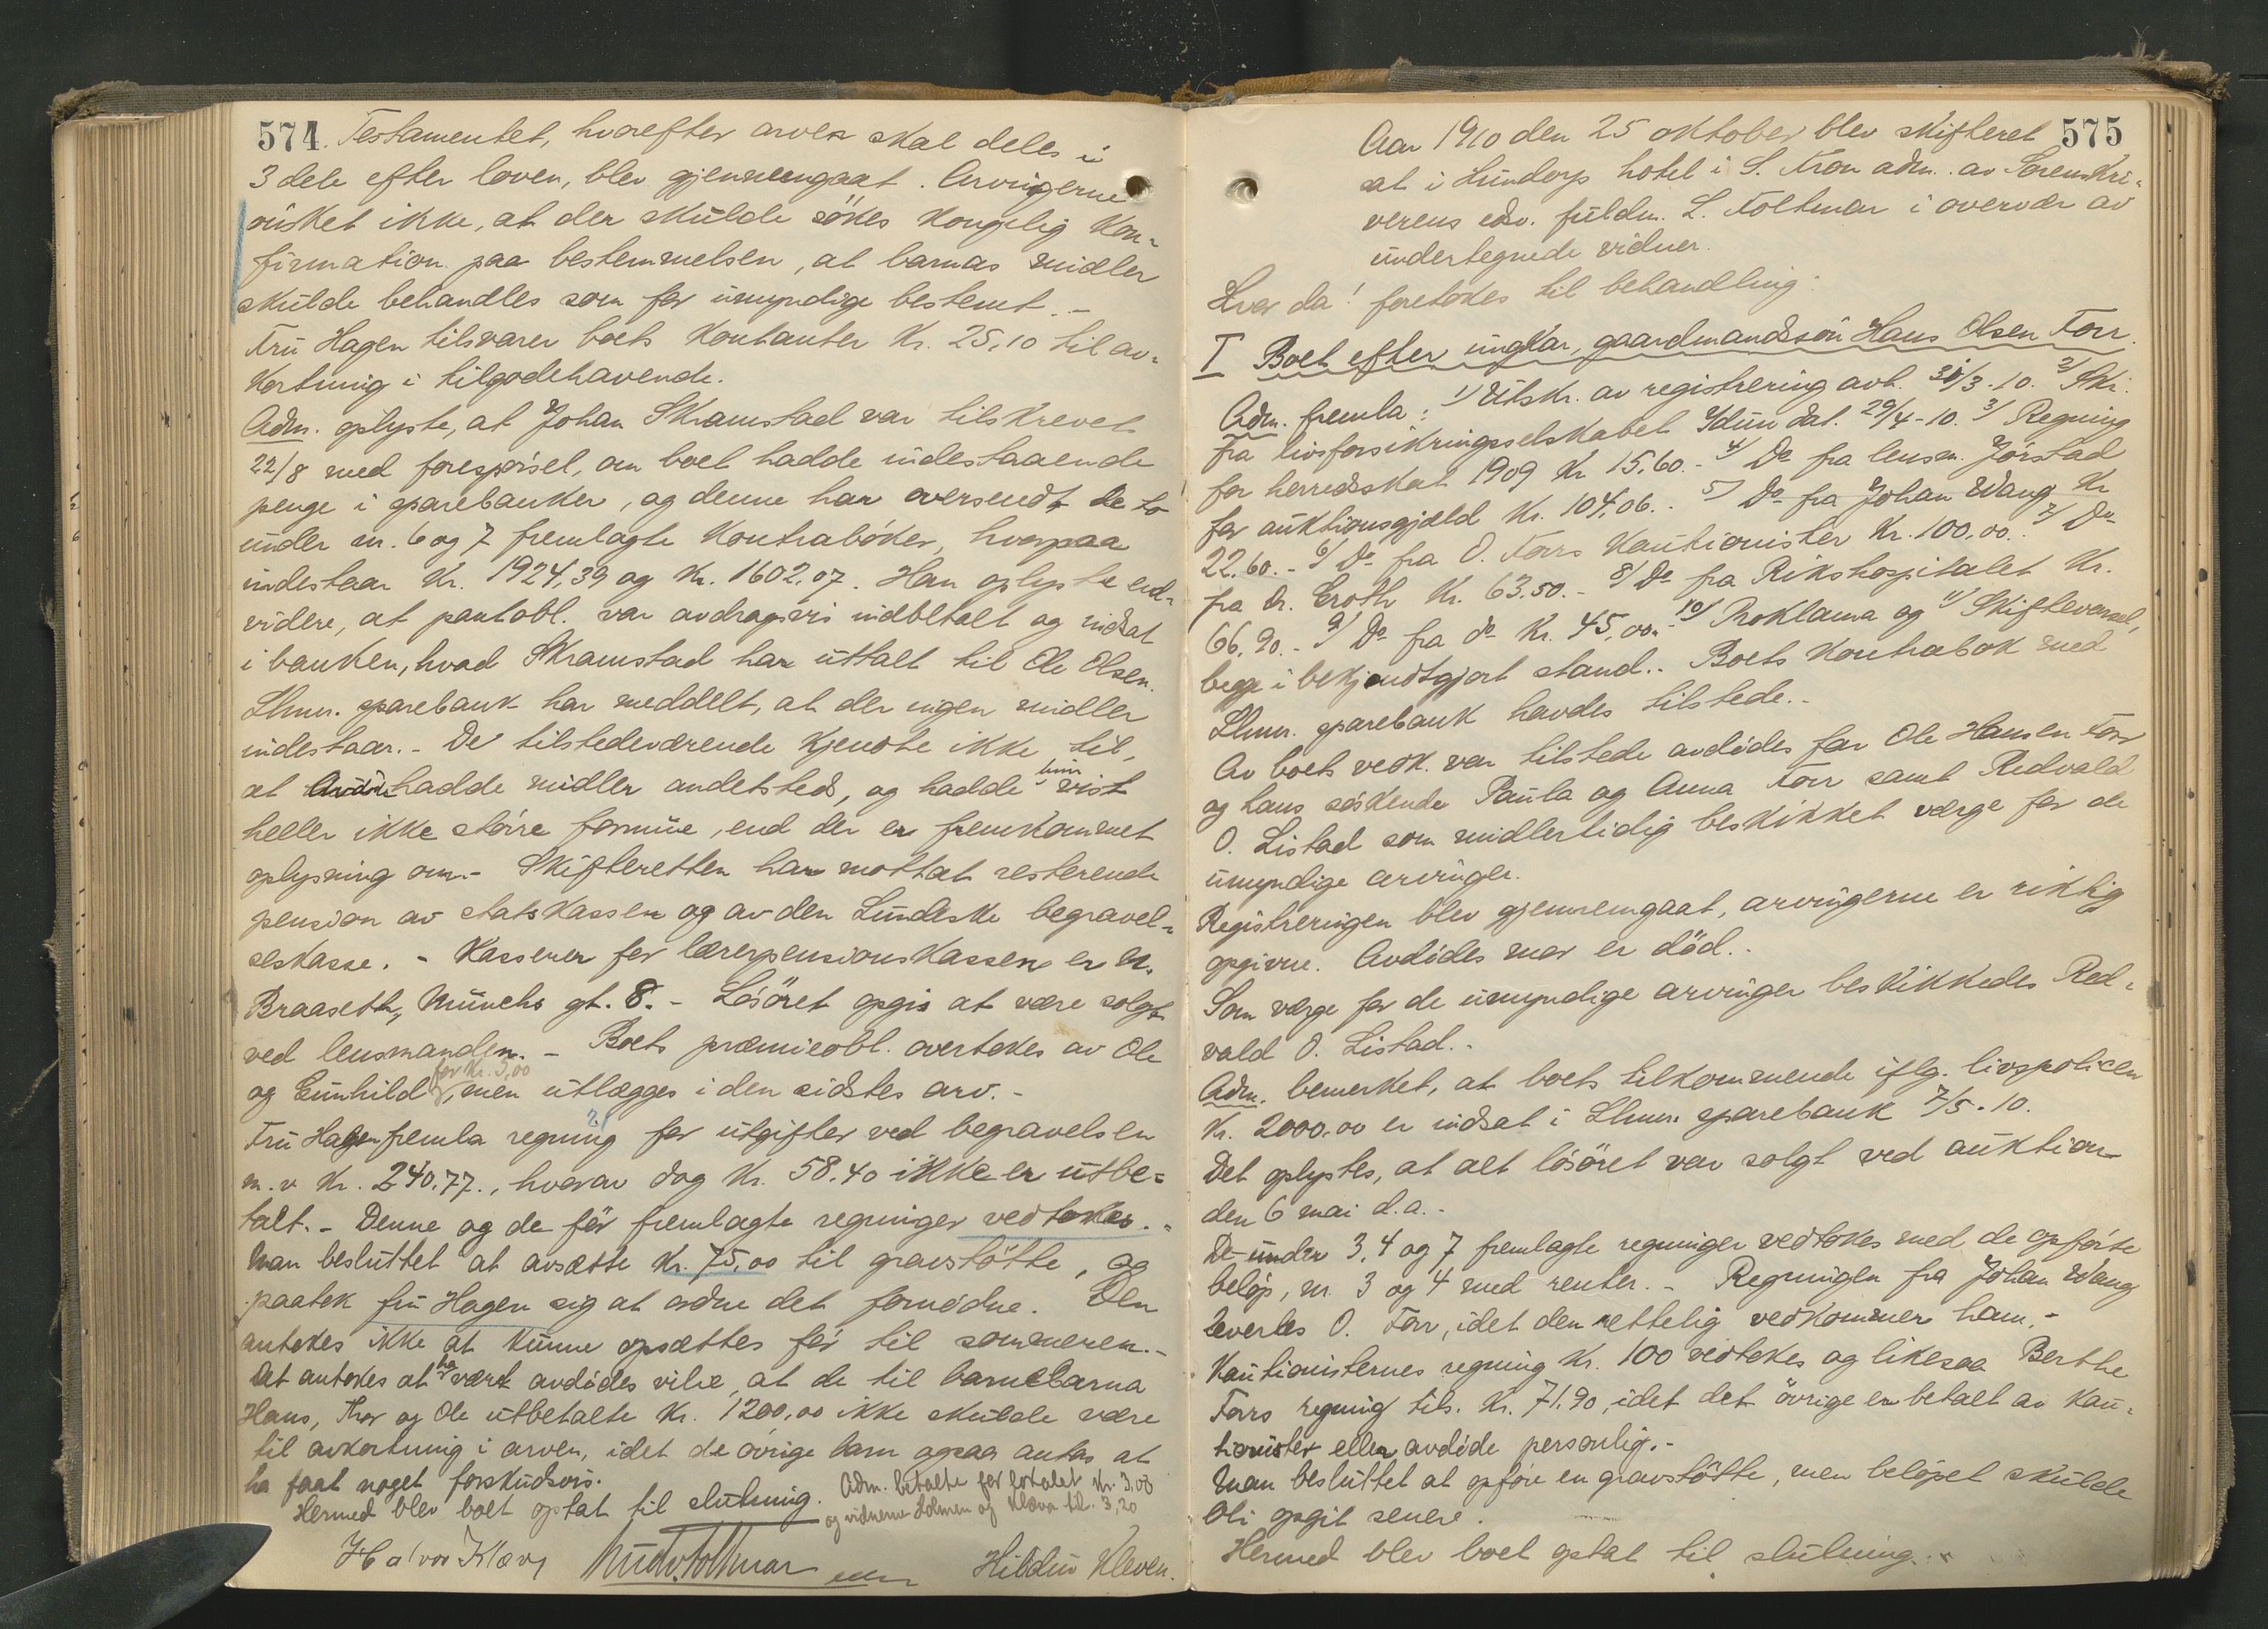 574. Testamentet, hvorefter arven skal deles i
3 dele efter loven, blev gjennemgaat. Arvingerne
ønsket ikke, at der skulde søkes kongelig kon-
firmation paa bestemmelsen, at barnas midler
skulde behandles som for umyndige bestemt. -
Fru Hagen tilsvarer boets kontanter Kr. 25,10 til av-
kortning i tilgodehavende.
Adm. oplyste, at Johan Skramstad var tilskrevet
22/8 med forespørsel, om boet hadde indestaaende
penge i sparebanker, og denne har oversendt de to
under nr. 6 og 7 fremlagte kontrabøker, hvorpaa
indestaar Kr. 1924,39 og Kr. 1602,07. Han oplyste end-
videre, at pantobl. var avdragsvis indbetalt og indsat
i banken, hvad Skramstad har uttalt til Ole Olsen.
Lhmr. sparebank har meddelt, at der ingen midler
indestaar. - De tilstedeværende kjendte ikke til,
at avdøde hadde midler andetsteds, og hadde hun vist
heller ikke større formue, end der er fremkommet
oplysning om. - Skifteretten har mottat resterende
pension av statskassen og av den Lundeske begravel-
seskasse. - Kasserer for lærerpensionskassen er N.
Braaseth, Munchs gt. 8. - Løsøret opgis at være solgt
ved lensmanden. - Boets præmieobl. overtokes av Ole
og Gunhild for Kr. 5,00, men utlægges i den sidstes arv. -
Fru Hagen fremla regning for utgifter ved begravelsen
m.v. Kr. 240.77., hvorav dog Kr. 58.40 ikke er utbe-
talt. - Denne og de før fremlagte regninger vedtokes. -
Man besluttet at avsætte Kr. 75,00 til gravstøtte, og
paatok fru Hagen sig at ordne det fornødne. Den
antokes ikke at kunne opsættes før til sommeren. -
Det antokes at ha været avdødes vilje, at de til barnebarna
Hans, Thor og Ole utbetalte Kr. 1200,00 ikke skulde være
til avkortning i arven, idet de øvrige barn ogsaa antas at
ha faat noget forskudsvis.
Hermed blev boet optat til slutning. Adm. betalte for lokalet Kr. 3,00
og vidnerne Holmen og Kleven til. 3,20
Halvor Klæv Ludv. Toltmar Hildur Kleven.
575
Aar 1910 den 25 oktober blev skifteret
sat i Lundorps hotel i S. Fron adm. av Sorenskri-
verens edsv. fuldm. L. Foltmar i overvær av
undertegnede vidner.
Hvor da! foretokes til behandling:
I Boet efter ungkar, gaardmandssøn Hans Olsen Forr.
Adm. fremla: 1/ Utskr. av registrering avh. 31/3-10. 2/ Skr.
fra livsforsikringsselskabet Ydun dat. 29/4-10. 3/ Regning
for herredsskat 1909 Kr 15.60. - 4/ Do fra lensm. Jørstad
for auktionsgjæld Kr. 104,06. . 5/ Do fra Johan Wang Kr
22.60. - 6/ Do fra O. Forrs kautionister Kr. 100,00. 7/ Do
fra Dr. Groth Kr. 63.50. - 8/ Do fra Rikshospitalet Kr.
66.90. - 9/ Do fra do Kr. 45,00. - 10/ Proklama og 11/ Skiftevarsel,
begge i bekjendtgjort stand. . Boets kontrabok med
Lhmr. sparebank havdes tilstede. -
Av boets vedk. var tilstede avdødes far Ole Hansen Forr
og hans søskende Paula og Anna Forr samt Redvald
O. Listad som midlertidig beskikket værge for de
umyndige arvinger.
Registreringen blev gjennemgaat, arvingerne er riktig
opgivne. Avdødes mor er død. .
Som værge for de umyndige arvinger beskikkedes Red-
vald O. Listad. .
Adm. bemerket, at boets tilkommende iflg. livspolicen
Kr. 2000,00 er indsat i Lhmr. sparebank 7/5-10.
Det oplystes, at alt løsøret var solgt ved auktion
den 6 mai d.a. -
De under 3, 4 og 7 fremlagte regninger vedtokes med de opførte
beløp, nr. 3 og 4 med renter. - Regningen fra Johan Wang
leverles O. Forr, idet den rettelig vedkommer ham. -
Kautionisternes regning Kr. 100 vedtokes og likesaa Berthe
Forrs regning tils. Kr. 71.90, idet det øvrige er betalt av kau-
tionister eller avdøde personlig. -
Man besluttet at opføre en gravstøtte, men beløpet skulde
bli opgit senere.
Hermed blev boet optat til slutning. -